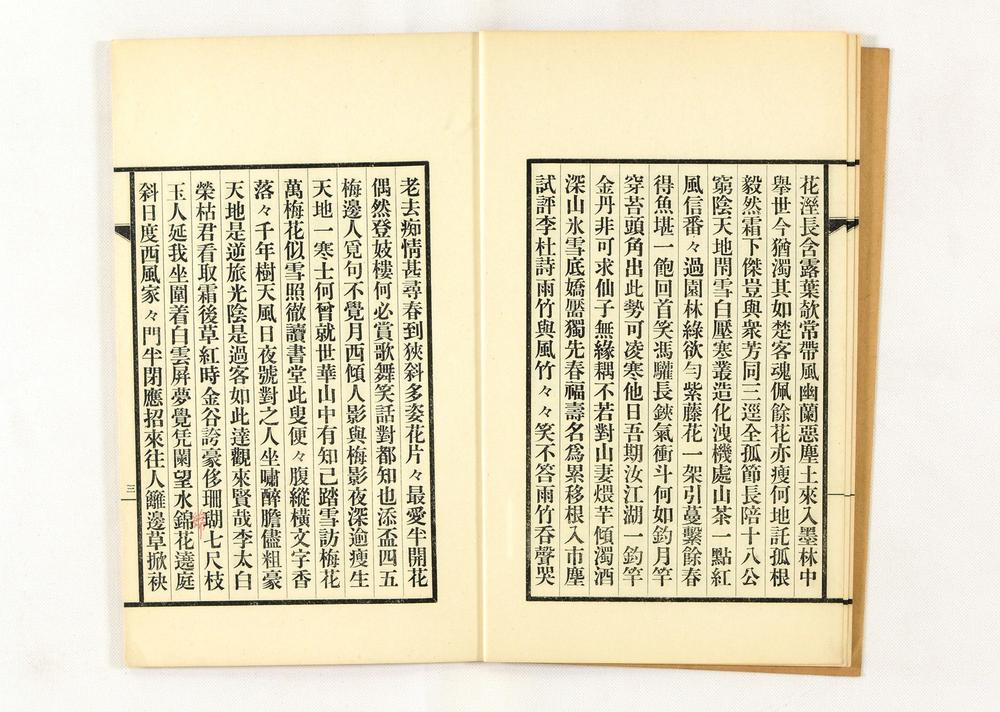 花溼長含露葉欹常帶風幽蘭惡塵土來入墨林中
舉世今猶濁其如楚客魂佩餘花亦瘦何地託孤根
毅然霜下傑豈與衆芳同三逕全孤節長陪十八公
窮陰天地閉雪白壓寒叢造化洩機處山茶一點紅
風信番々過園林綠欲勻紫藤花一架引蔓繫餘春
得魚堪一飽回首笑馮驩長鋏氣衝斗何如釣月竿
穿苔頭角出此勢可凌寒他日吾期汝江湖一釣竿
金丹非可求仙子無緣耦不若對山妻煨芋傾濁酒
深山氷雪底嬌靨獨先春福壽名爲累移根入市塵
試評李杜詩雨竹與風竹々々笑不答雨竹呑聲哭
老去痴情甚尋春到狹斜多姿花片々最愛半開花
偶然登妓樓何必賞歌舞笑話對都知也添盃四五
梅邊人覓句不覺月西傾人影與梅影夜深逾瘦生
天地一寒士何曾就世華山中有知己踏雪訪梅花
萬梅花似雪照徹讀書堂此叟便々腹縱橫文字香
落々千年樹天風日夜號對之人坐嘯醉膽儘粗豪
天地是逆旅光陰是過客如此達觀來賢哉李太白
榮枯君看取霜後草紅時金谷誇豪侈珊瑚七尺枝
玉人延我坐圍着白雲屛夢覺凭闌望水錦花遶庭
斜日度西風家々門半閉應招來往人籬邊草掀袂
三